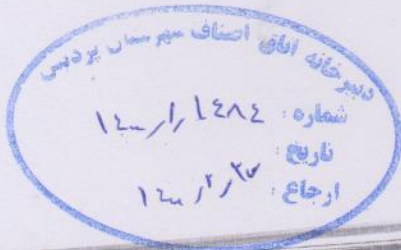 دبیرخانه اتاق اصناف شهرستان پردیس
شماره: ۱۴۰۰/۱/۱۴۸۴
تاریخ:
ارجاع: ۱۴۰۰/۲/۲۷